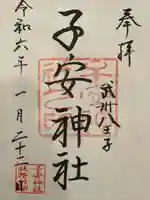 奉拝
武州八王子
子安神社
令和六年一月二十二